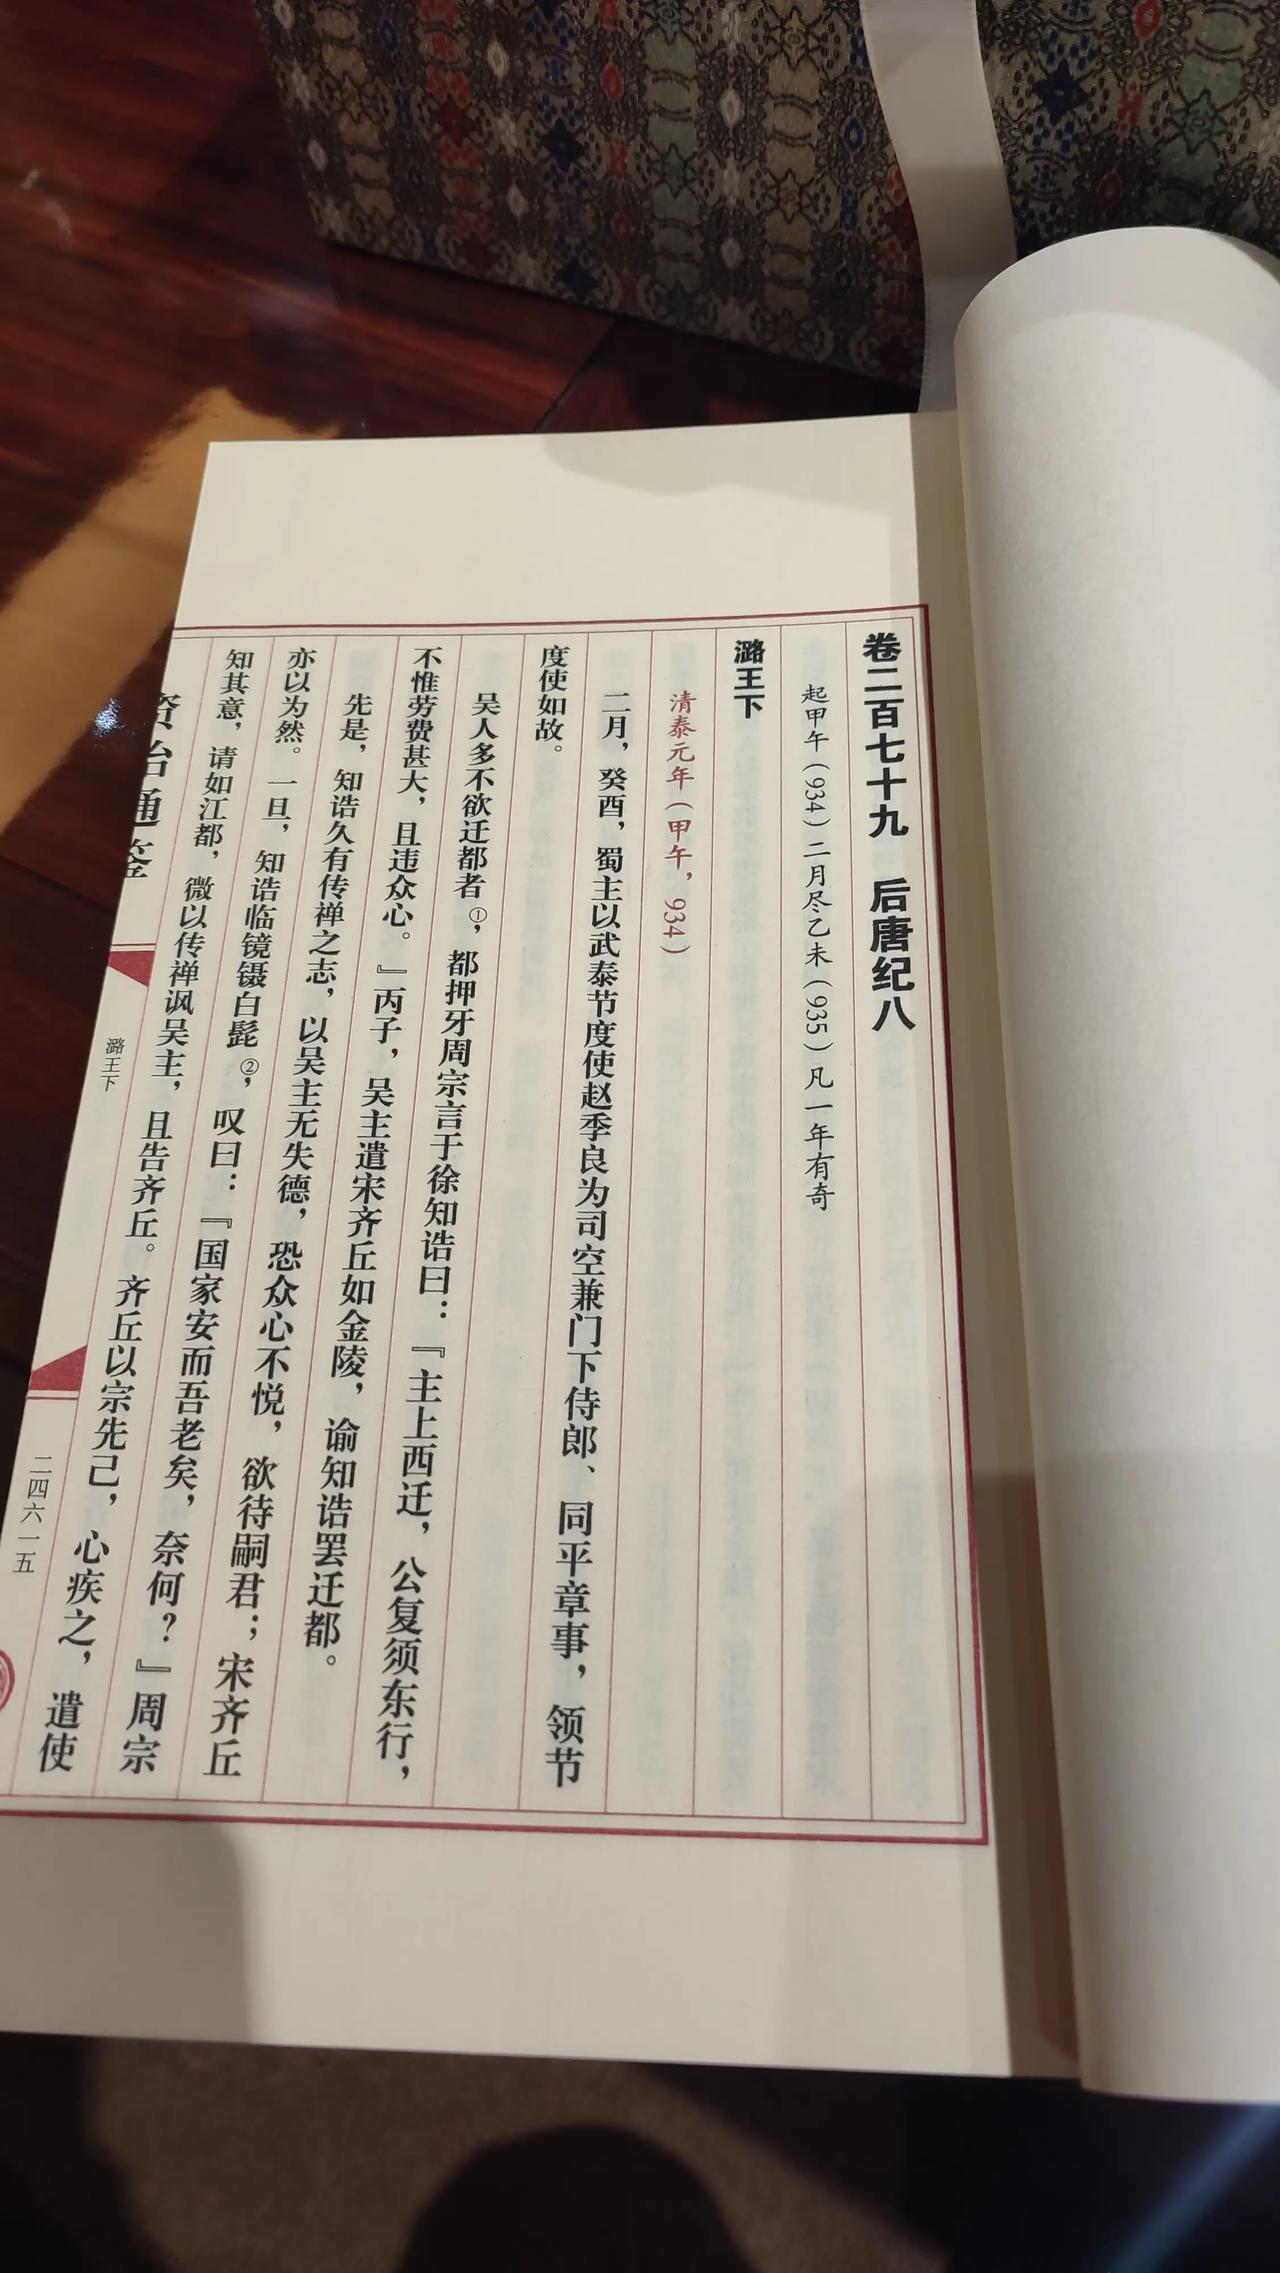 卷二百七十九　后唐纪八
起甲午（934）二月尽乙未（935）凡一年有奇
潞王下
清泰元年（甲午，934）
二月，癸酉，蜀主以武泰节度使赵季良为司空兼门下侍郎、同平章事，领节
度使如故。
吴人多不欲迁都者①，都押牙周宗言于徐知诰曰：『主上西迁，公复须东行，
不惟劳费甚大，且违众心。』丙子，吴主遣宋齐丘如金陵，谕知诰罢迁都。
先是，知诰久有传禅之志，以吴主无失德，恐众心不悦，欲待嗣君；宋齐丘
亦以为然。一旦，知诰临镜镊白髭②，叹曰：『国家安而吾老矣，奈何？』周宗
知其意，请如江都，微以传禅讽吴主，且告齐丘。齐丘以宗先己，心疾之，遣使
资治通鉴
潞王下
二四六一五